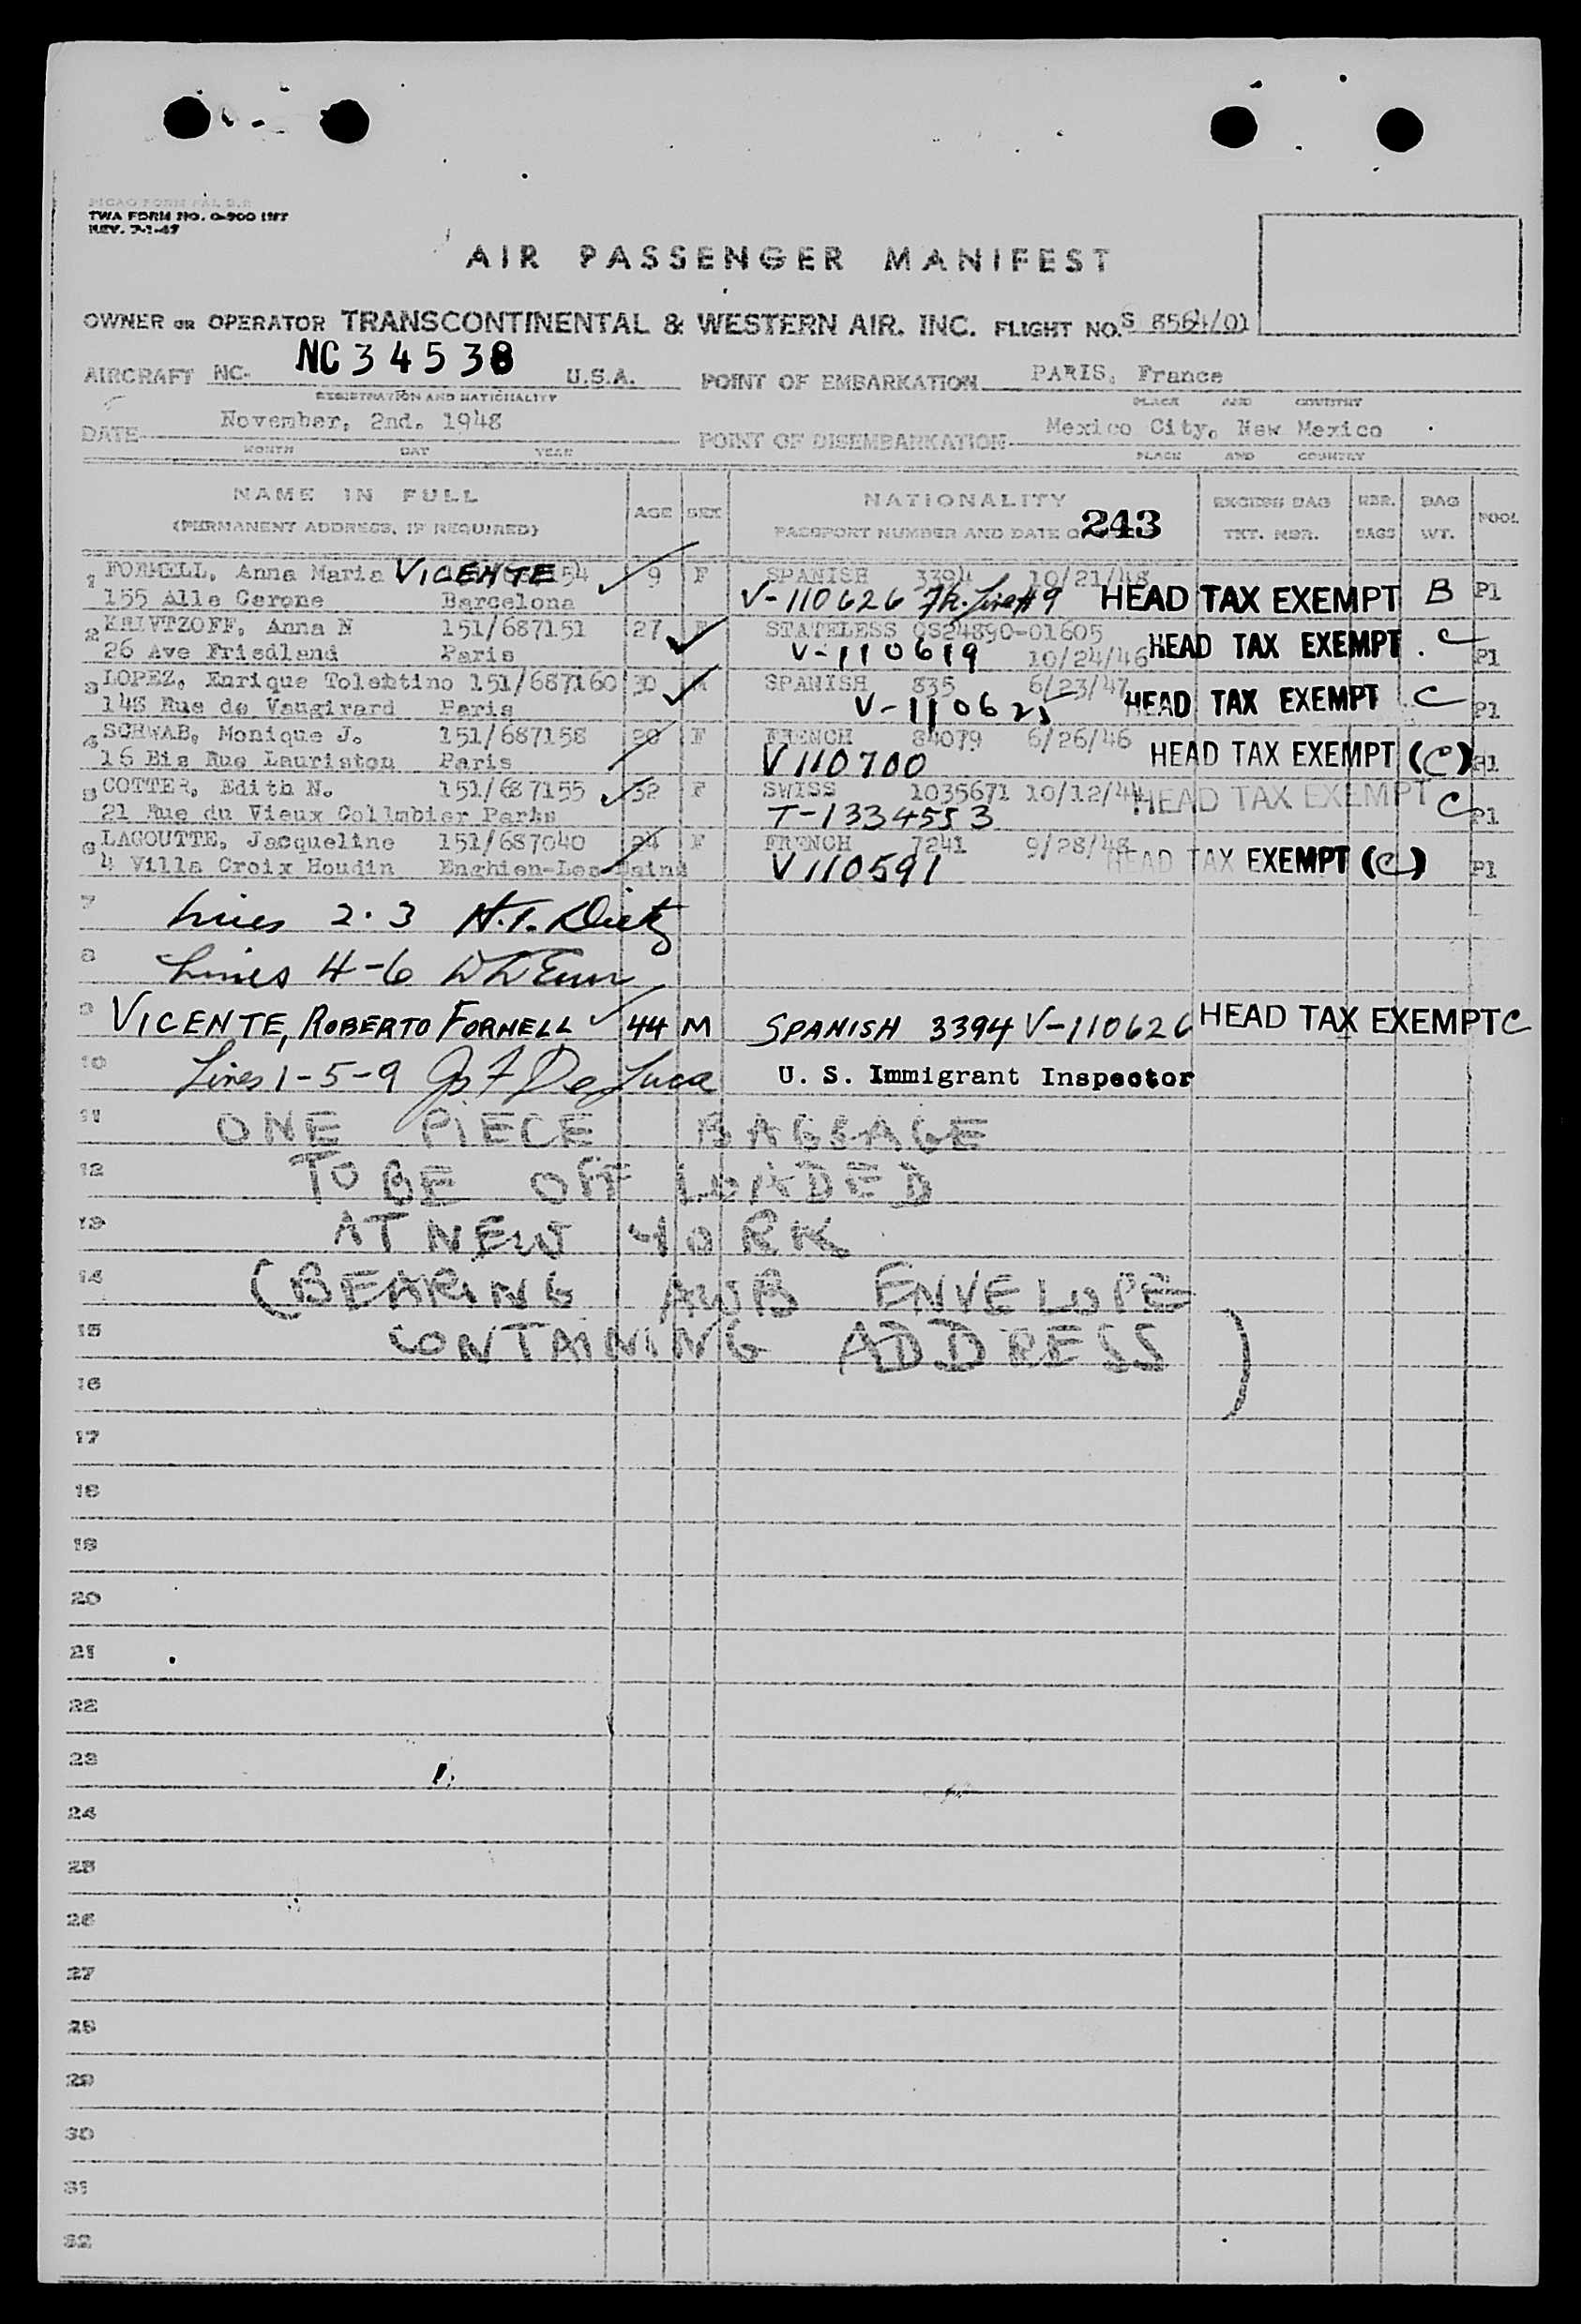 TWA FORM NO. O-900 INT
REV. 7-1-47
AIR PASSENGER MANIFEST
OWNER OR OPERATOR TRANSCONTINENTAL & WESTERN AIR. INC. FLIGHT NO. S 8564/01
AIRCRAFT NC- NC34538 U.S.A. POINT OF EMBARKATION PARIS, France
REGISTRATION AND NATIONALITY PLACE AND COUNTRY
DATE November, 2nd. 1948 POINT OF DISEMBARKATION Mexico City, New Mexico
MONTH DAY YEAR PLACE AND COUNTRY
NAME IN FULL AGE SEX NATIONALITY EXCESS BAG NBR. BAG POOL
(PERMANENT ADDRESS, IF REQUIRED) PASSPORT NUMBER AND DATE 243 TKT. NBR. BAGS WT.
1 FORMELL, Anna Maria VICENTE 154 9 F SPANISH 3394 10/21/48
155 Alle Gerone Barcelona V-110626 Line #9 HEAD TAX EXEMPT B P1
2 KRIVTZOFF, Anna N 151/687151 27 F STATELESS OS24890-01605 HEAD TAX EXEMPT. C
26 Ave Friedland Paris V-110619 10/24/46 P1
3 LOPEZ, Enrique Tolentino 151/687160 30 M SPANISH 835 6/23/47
148 Rue de Vaugirard Paris V-110625 HEAD TAX EXEMPT C P1
4 SCHWAB, Monique J. 151/687158 20 F FRENCH 84079 6/26/46
16 Bis Rue Lauriston Paris V110700 HEAD TAX EXEMPT (C) P1
5 COTTER, Edith N. 151/687155 32 F SWISS 1035671 10/12/44 HEAD TAX EXEMPT C
21 Rue du Vieux Collmbier Parks T-1334553 P1
6 LAGOUTTE, Jacqueline 151/687040 24 F FRENCH 7241 9/28/48
4 Villa Croix Houdin Enghien-Les-Bains V110591 HEAD TAX EXEMPT (C) P1
7 Lines 2-3 H.T. Dietz
8 Lines 4-6
9 VICENTE, ROBERTO FORNELL 44 M SPANISH 3394 V-110626 HEAD TAX EXEMPT C
10 Lines 1-5-9 De Luca U. S. Immigrant Inspector
11 ONE PIECE BAGGAGE
12 TO BE OFF LOADED
13 AT NEW YORK
14 (BEARING AWB ENVELOPE
15 CONTAINING ADDRESS)
16
17
18
19
20
21
22
23
24
25
26
27
28
29
30
31
32